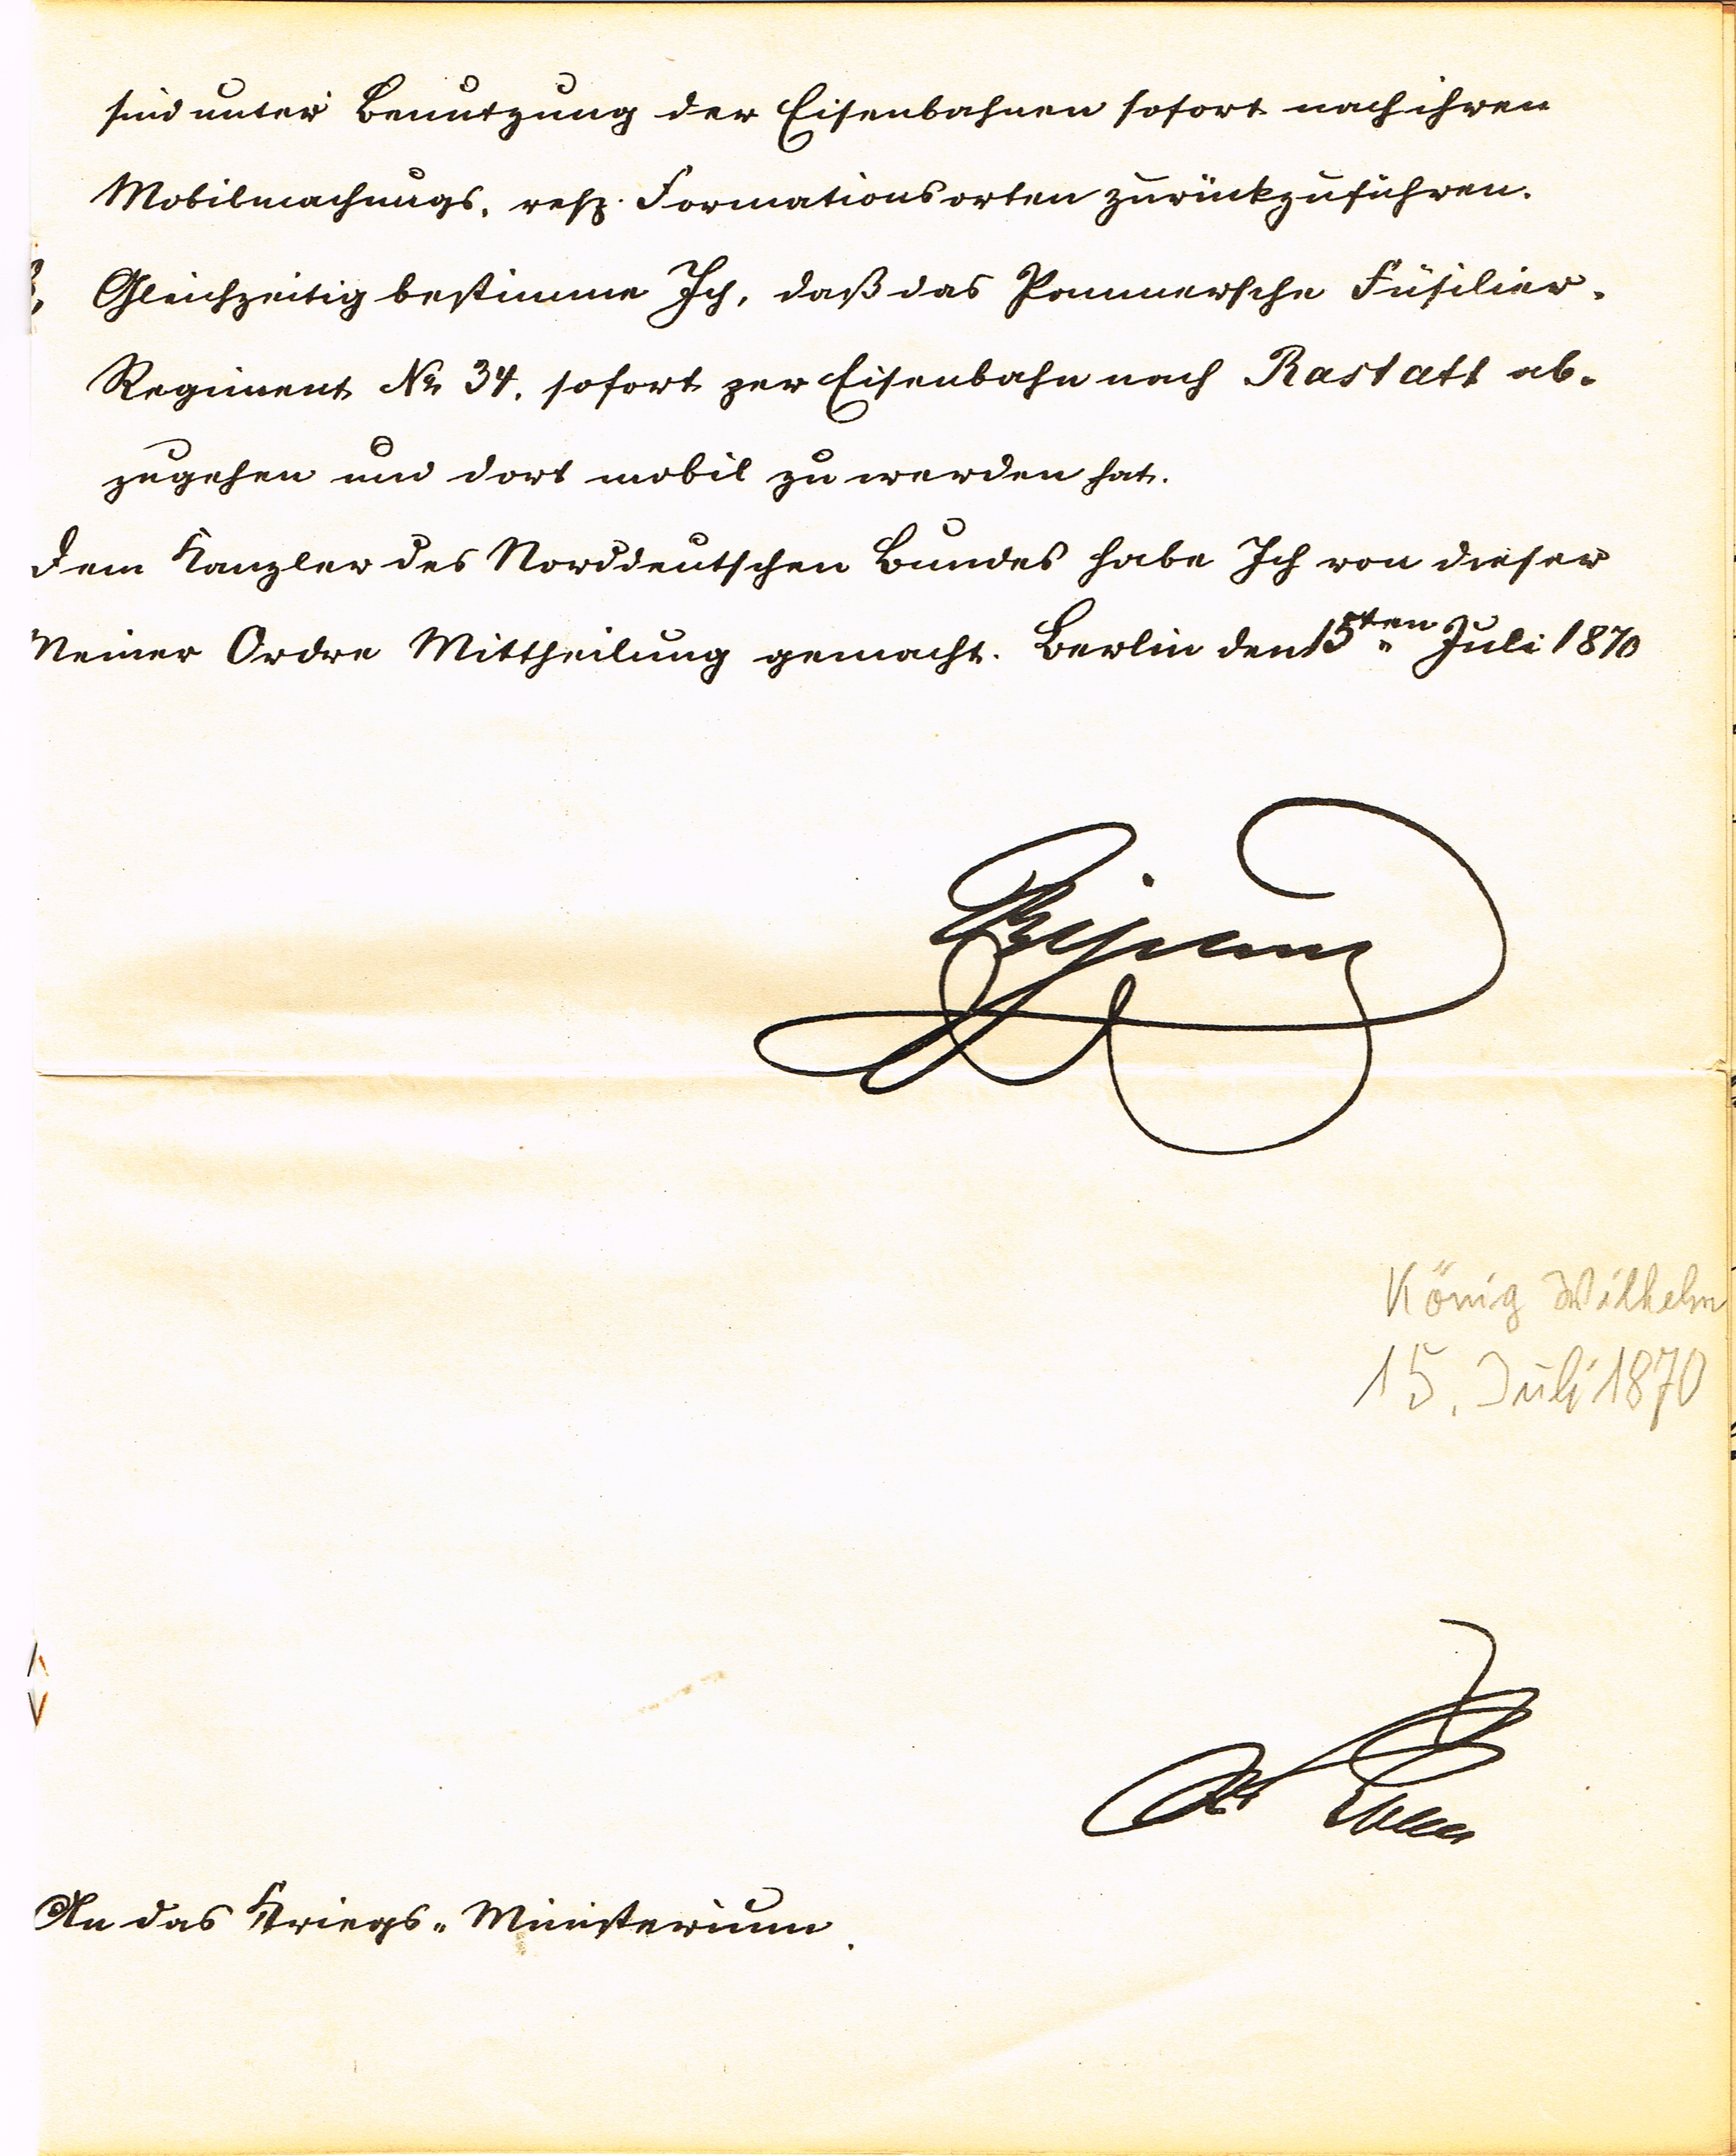 sind unter Benutzung der Eisenbahnen sofort nach ihren
Mobilmachungs- resp. Formationsorten zurückzuführen.
Gleichzeitig bestimme Ich, daß das Pommersche Füsilier-
Regiment No 34. sofort per Eisenbahn nach Rastatt ab-
zugehen und dort mobil zu werden hat.
Dem Kanzler des Norddeutschen Bundes habe Ich von dieser
Meiner Ordre Mittheilung gemacht. Berlin den 15ten Juli 1870
Wilhelm
König Wilhelm
15. Juli 1870
v Roon
An das Kriegs-Ministerium.